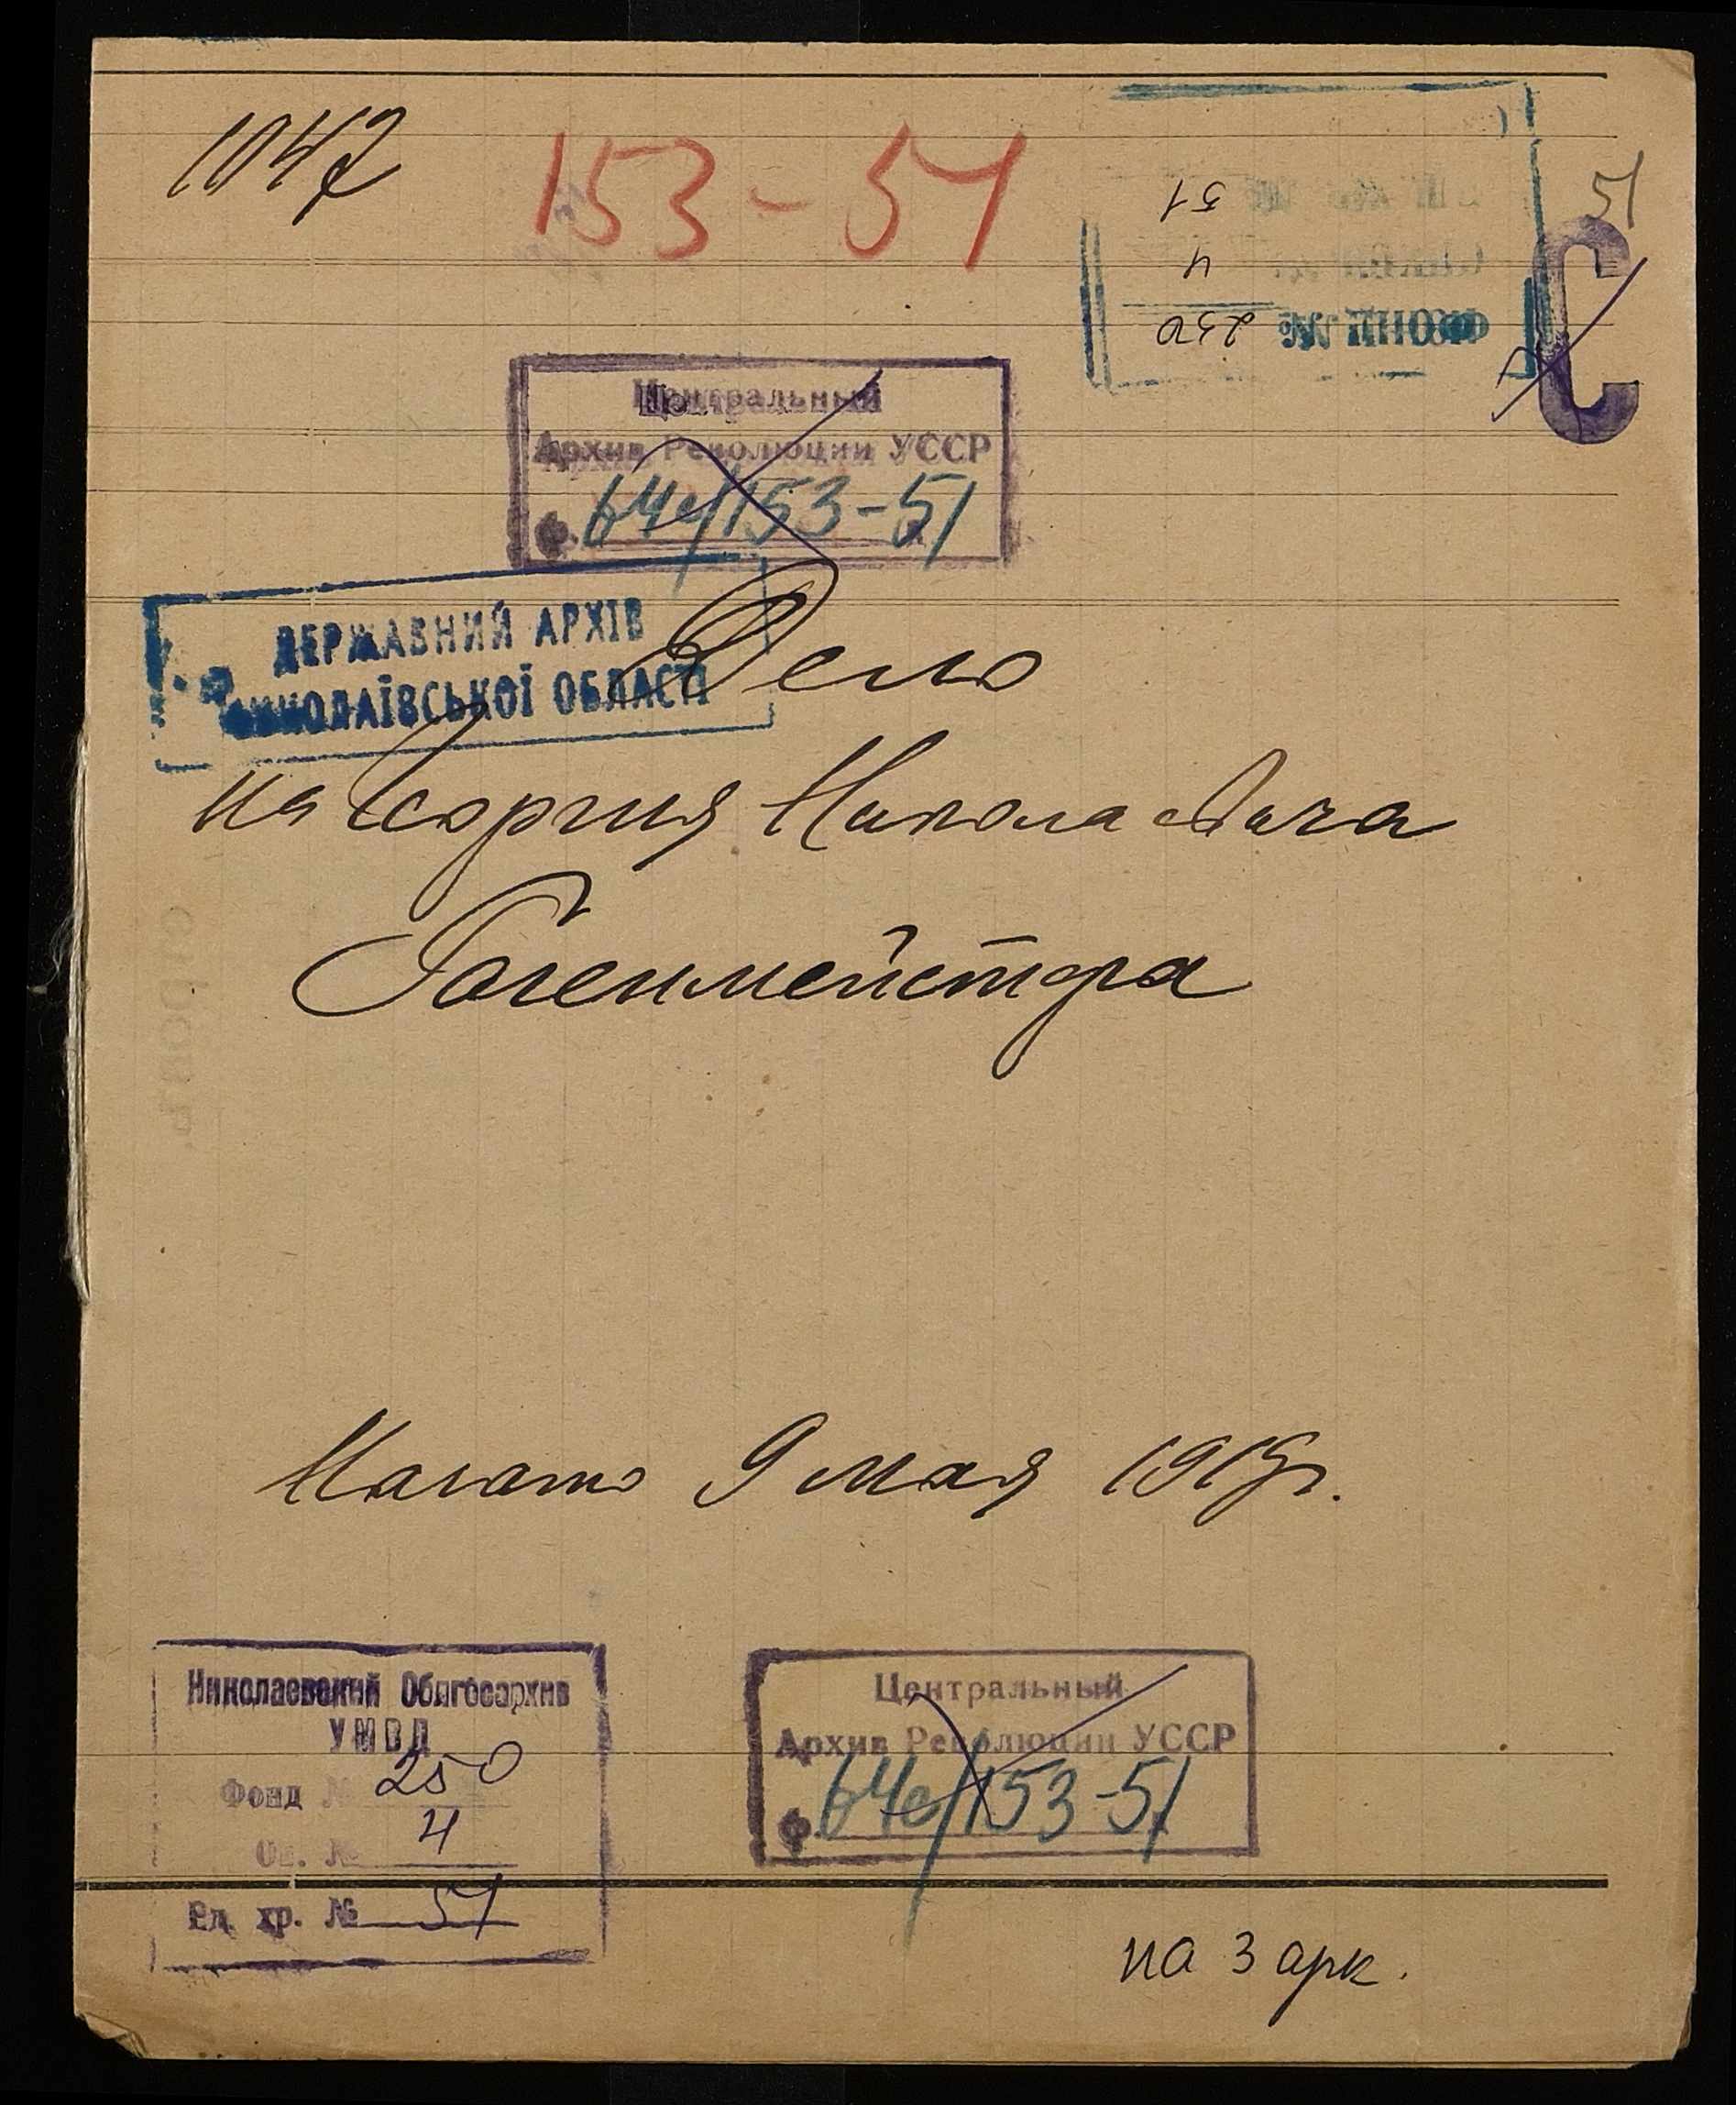 1047
153-51
51
51
4
ФОНД № 250
С
Центральный
Архив Революции УССР
ф. 64с/153-51
ДЕРЖАВНИЙ АРХІВ
МИКОЛАЇВСЬКОЇ ОБЛАСТІ
Дело
на Георгия Николаевича
Гогенмейстра
Начато 9 мая 1919г.
Николаевский Облгосархив
УМВД
Фонд № 250
Оп. № 4
Ед. хр. № 51
Центральный
Архив Революции УССР
ф. 64с/153-51
на 3 арк.